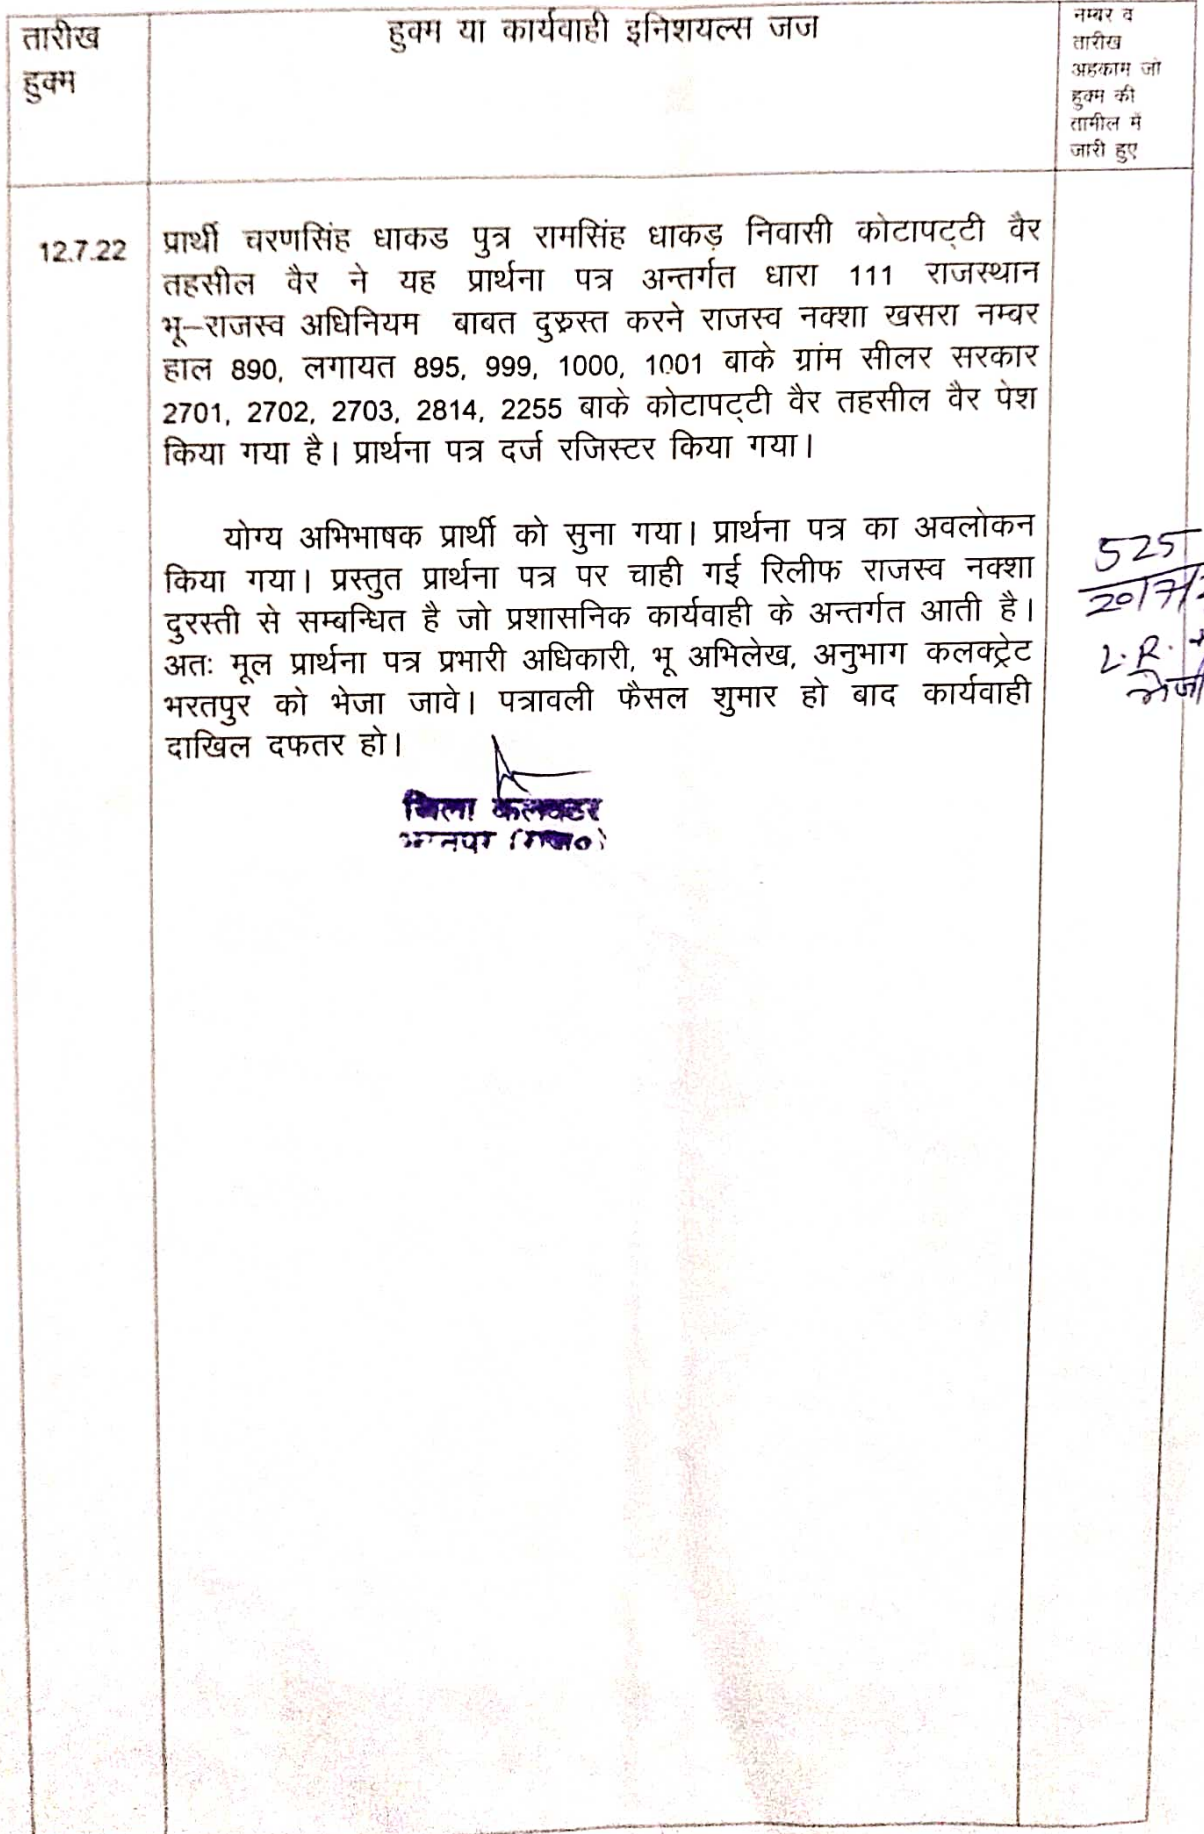 तारीख
हुक्म
हुक्म या कार्यवाही इनिशयल्स जज
नम्बर व
तारीख
अहकाम जो
हुक्म की
तामील में
जारी हुए
12.7.22
प्रार्थी चरणसिंह धाकड पुत्र रामसिंह धाकड़ निवासी कोटापट्टी वैर
तहसील वैर ने यह प्रार्थना पत्र अन्तर्गत धारा 111 राजस्थान
भू–राजस्व अधिनियम बाबत दुरूस्त करने राजस्व नक्शा खसरा नम्बर
हाल 890, लगायत 895, 999, 1000, 1001 बाके ग्रांम सीलर सरकार
2701, 2702, 2703, 2814, 2255 बाके कोटापट्टी वैर तहसील वैर पेश
किया गया है। प्रार्थना पत्र दर्ज रजिस्टर किया गया।
योग्य अभिभाषक प्रार्थी को सुना गया। प्रार्थना पत्र का अवलोकन
किया गया। प्रस्तुत प्रार्थना पत्र पर चाही गई रिलीफ राजस्व नक्शा
दुरस्ती से सम्बन्धित है जो प्रशासनिक कार्यवाही के अन्तर्गत आती है।
अतः मूल प्रार्थना पत्र प्रभारी अधिकारी, भू अभिलेख, अनुभाग कलक्ट्रेट
भरतपुर को भेजा जावे। पत्रावली फैसल शुमार हो बाद कार्यवाही
दाखिल दफतर हो।
जिला कलक्टर
525
20/7/
L.R.